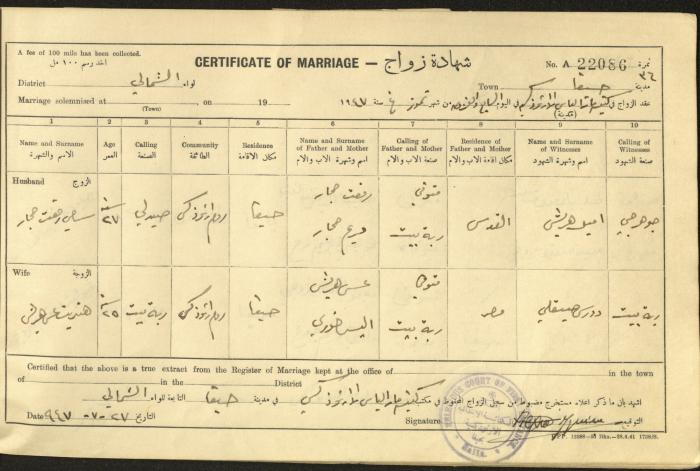 A fee of 100 mile has been collected.
اخذ رسم ١٠٠ مل
CERTIFICATE OF MARRIAGE — شهادة زواج
No. A 22086 نمرة
District لواء الشمالي
Town حيفا مدينة ٣٦
Marriage solemnised at , on 19
(Town)
عقد الزواج في كنيسة الياس في اليوم السابع والعشرون من شهر تموز سنة ١٩٤٧
(مدينة)
1 2 3 4 5 6 7 8 9 10
Name and Surname الاسم والشهرة
Age العمر
Calling الصنعة
Community الطائفة
Residence مكان الاقامة
Name and Surname of Father and Mother اسم وشهرة الاب والام
Calling of Father and Mother صنعة الاب والام
Residence of Father and Mother مكان اقامة الاب والام
Name and Surname of Witnesses اسم وشهرة الشهود
Calling of Witnesses صنعة الشهود
Husband الزوج
رفعت حجار متوفي
سامي رفعت حجار ٢٧ سنة صيدلي روم ارثوذكس حيفا القدس اميل جوهرجي
مريم حجار ربة بيت
Wife الزوجة
عيسى متوفي
هنرييت عيسى ٢٥ سنة ربة بيت روم ارثوذكس حيفا مصر دوري صيقلي ربة بيت
اليس خوري ربة بيت
Certified that the above is a true extract from the Register of Marriage kept at the office of in the town
of in the District
اشهد بان ما ذكر اعلاه مستخرج مضبوط من سجل الزواج المحفوظ في مكتب كنيسة مار الياس في مدينة حيفا التابعة للواء الشمالي
Date ٢٧-٧-٩٤٧ التاريخ
Signature التوقيع
COURT OF
Haifa